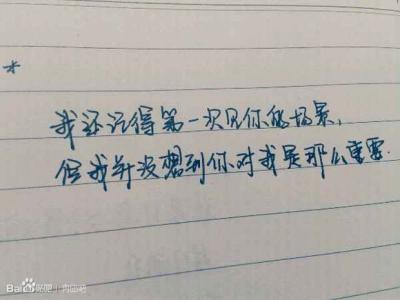 *
我还记得第一次见你的场景,
但我并没想到你对我是那么重要.
Bai 贴吧 | 肉面吧